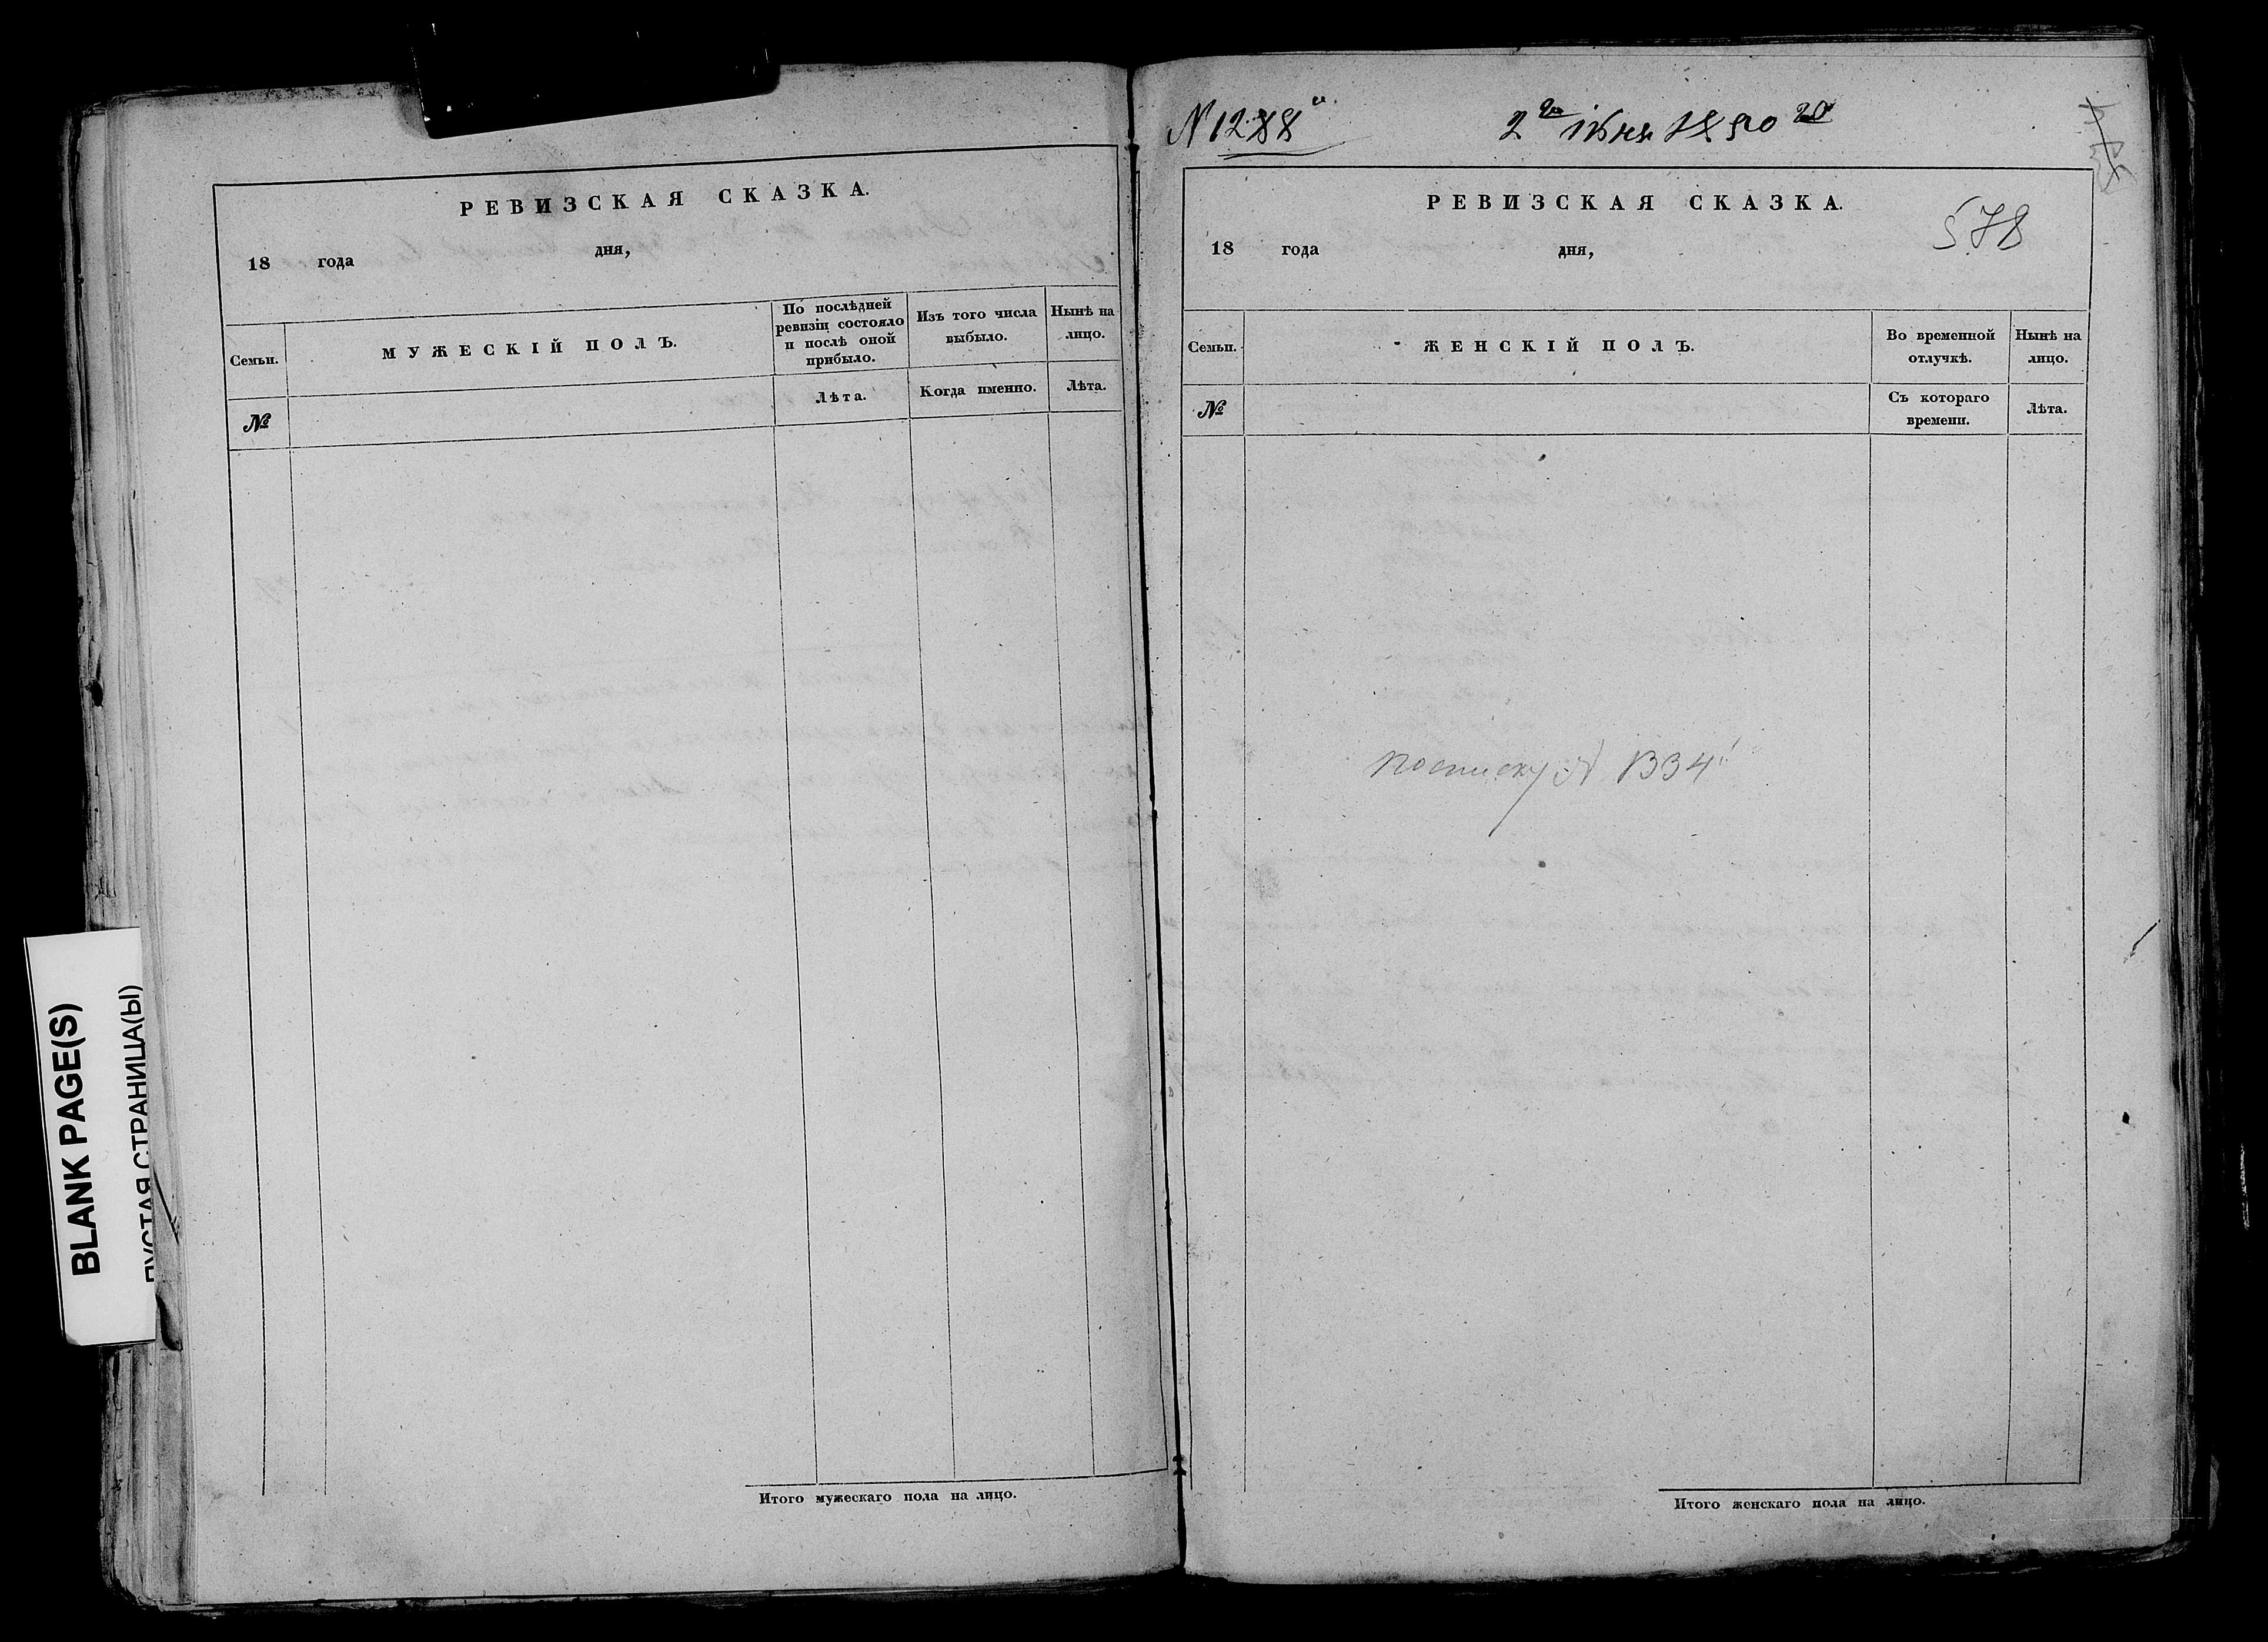 РЕВИЗСКАЯ СКАЗКА.
18 года дня,
Семьи.
МУЖЕСКІЙ ПОЛЪ.
По послѣдней ревизіи состояло и послѣ оной прибыло.
Изъ того числа выбыло.
Нынѣ на лицо.
№
Лѣта.
Когда именно.
Лѣта.
Итого мужескаго пола на лицо.
BLANK PAGE(S)
ПУСТАЯ СТРАНИЦА(Ы)
N 1288й.
2го іюня 1850 го
РЕВИЗСКАЯ СКАЗКА.
578
18 года дня,
Семьи.
ЖЕНСКІЙ ПОЛЪ.
Во временной отлучкѣ.
Нынѣ на лицо.
№
Съ котораго времени.
Лѣта.
по списку N 1334
Итого женскаго пола на лицо.